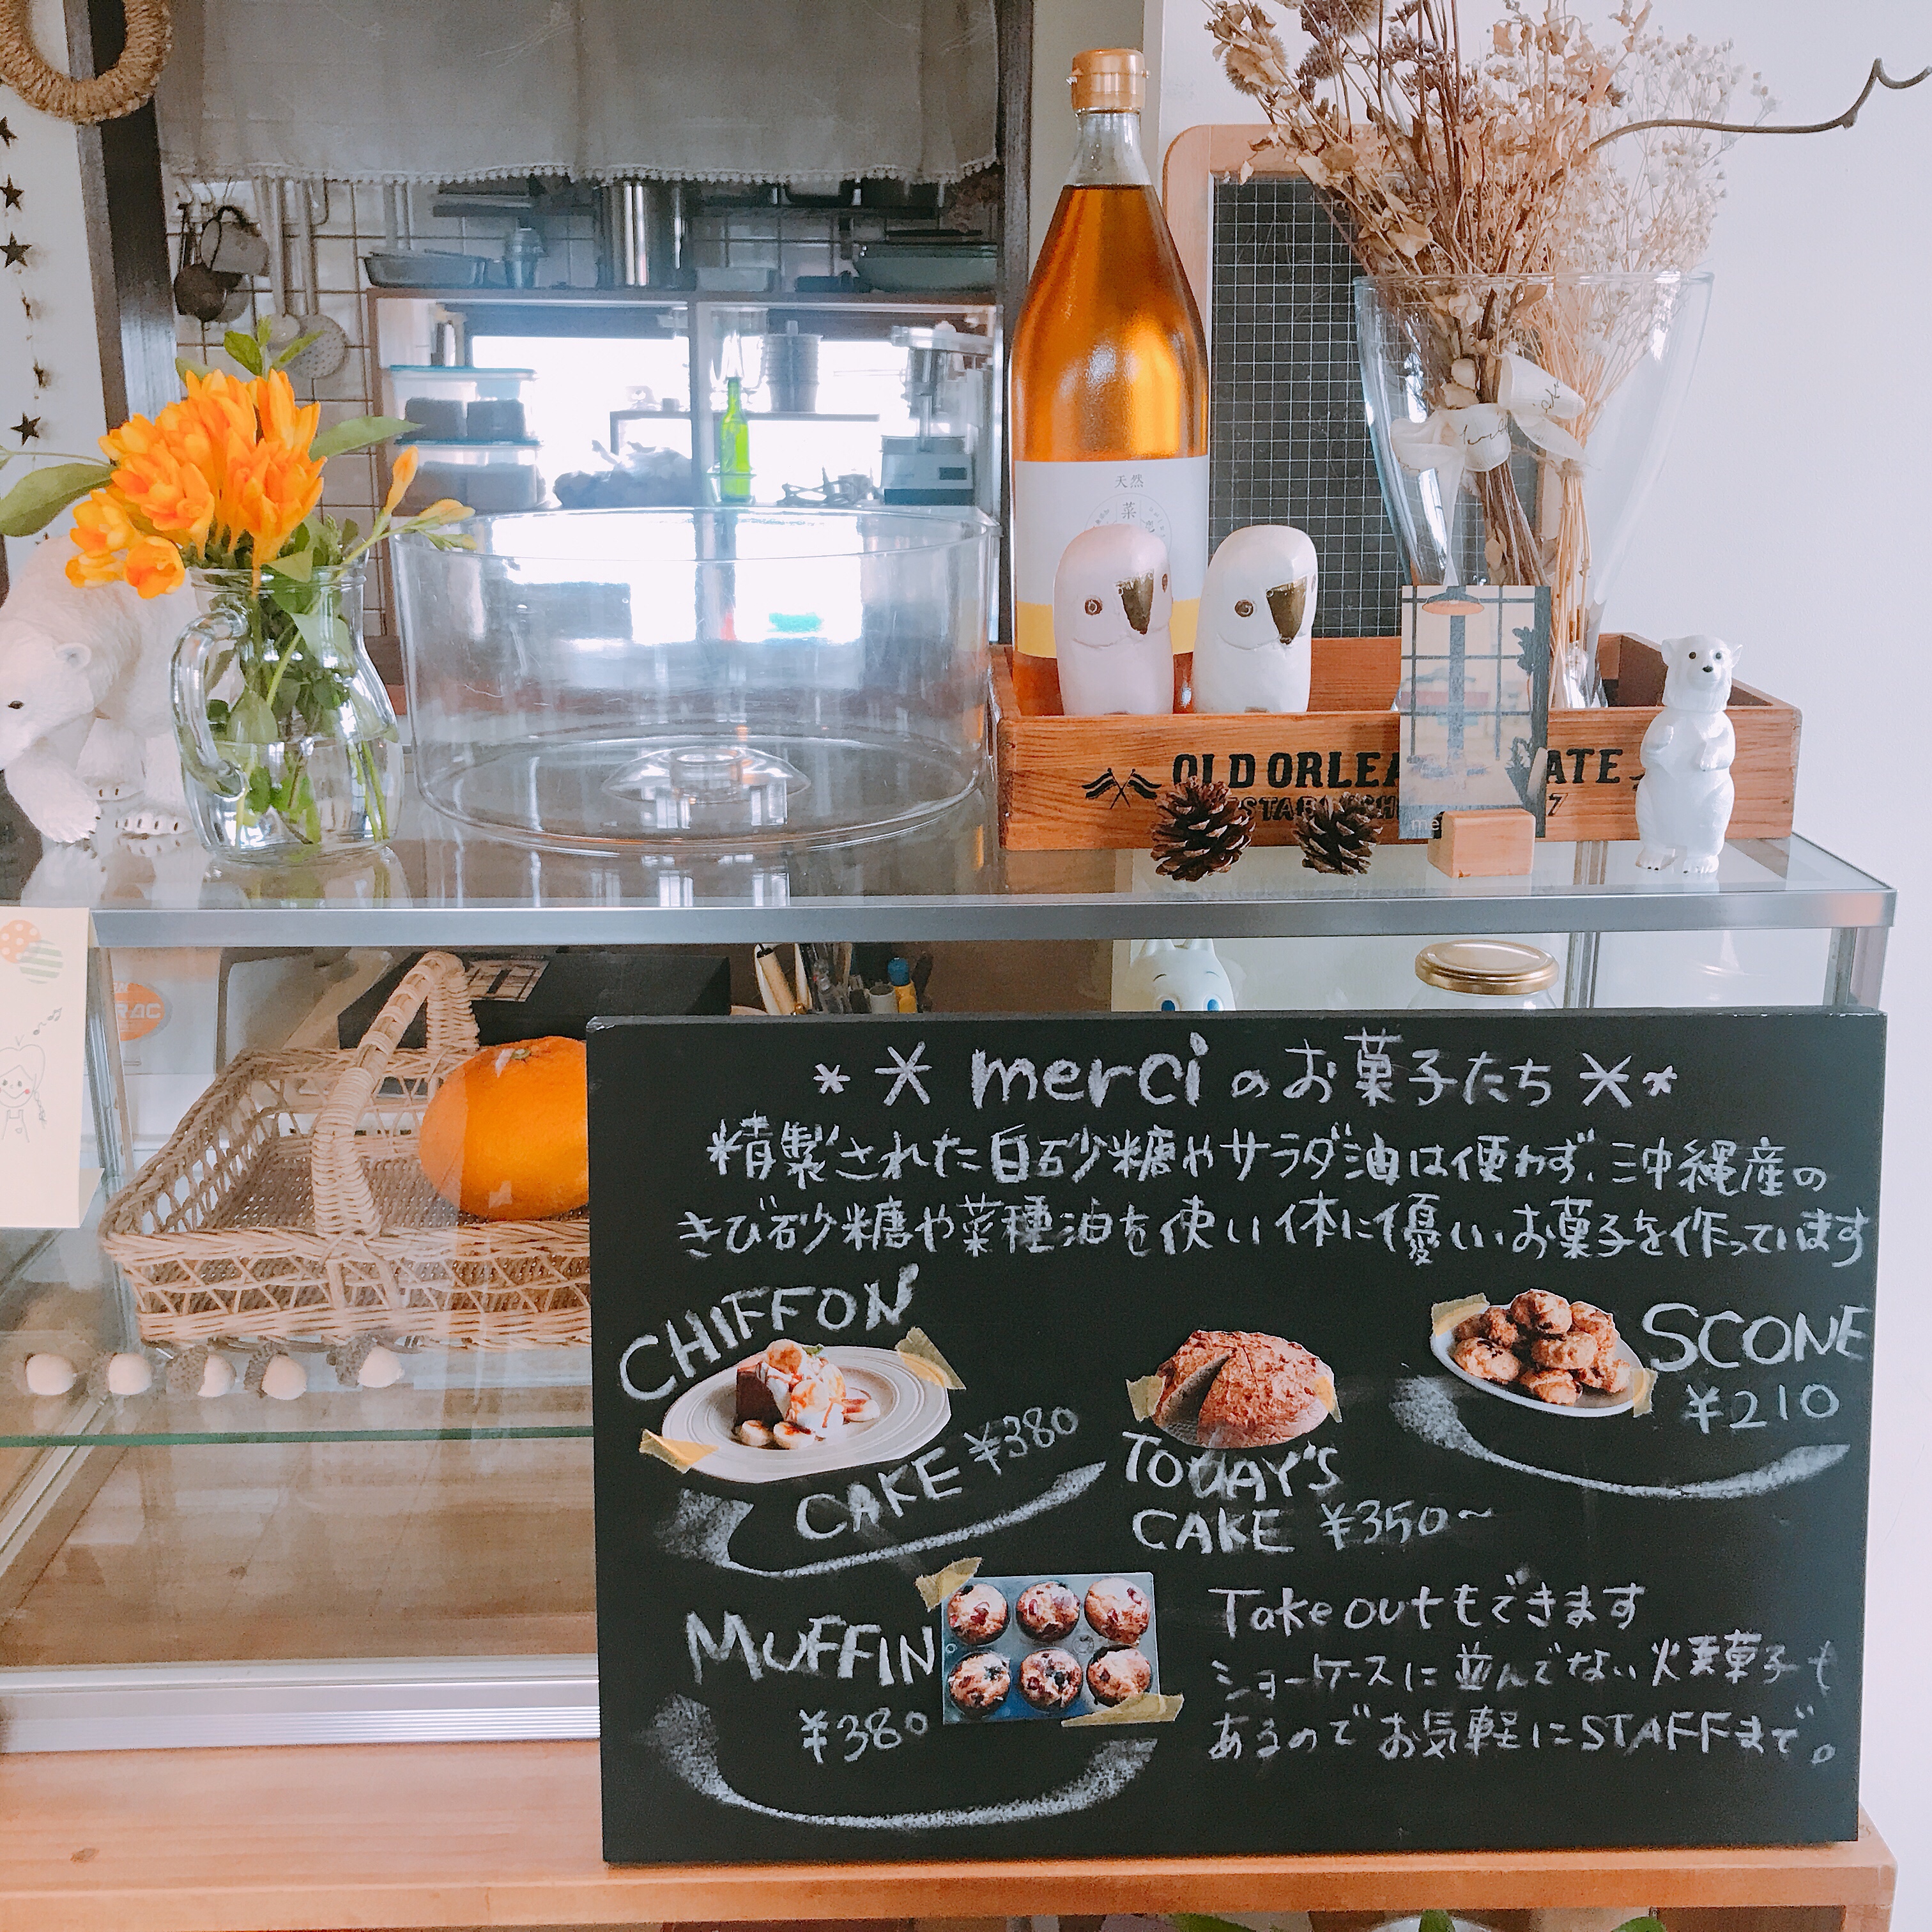 天然
菜
OLD ORLEA ATE
ESTABLISH 7
me
RAC
* * merci のお菓子たち * *
精製された白砂糖やサラダ油は使わず、沖縄産の
きび砂糖や菜種油を使い体に優しいお菓子を作っています
CHIFFON
CAKE ¥380
TODAY'S
CAKE ¥350~
SCONE
¥210
MUFFIN
¥380
Take outもできます
ショーケースに並んでない焼菓子も
あるのでお気軽にSTAFFまで。